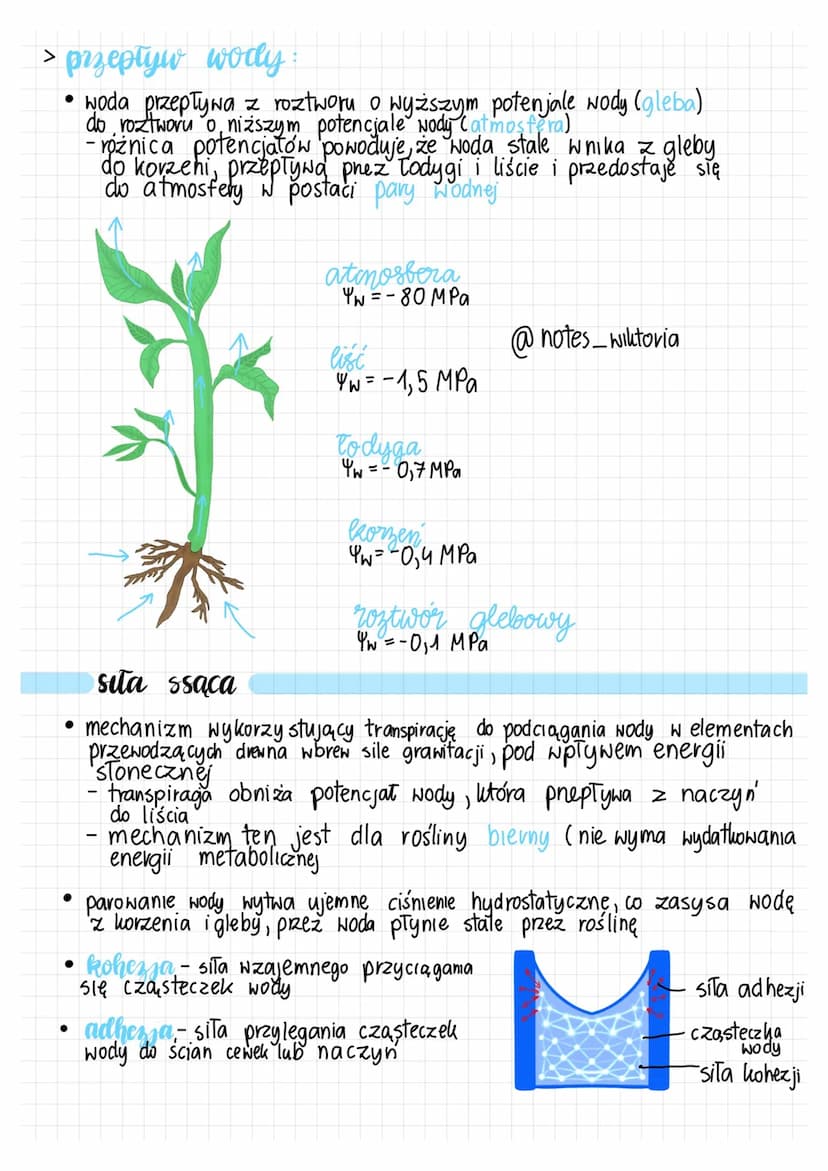 > przepływ wody:
• woda przepływa z roztworu o wyższym potenjale wody (gleba)
do roztworu o niższym potencjale wody (atmosfera)
- różnica potencjałów powoduje, że woda stale wnika z gleby
do korzeni, przepływa przez łodygi i liście i przedostaje się
do atmosfery w postaci pary wodnej
atmosfera
Ψw = - 80 MPa
@notes_wiktoria
liść
Ψw = -1,5 MPa
łodyga
Ψw = - 0,7 MPa
korzeń
Ψw = -0,4 MPa
roztwór glebowy
Ψw = -0,1 MPa
siła ssąca
• mechanizm wykorzystujący transpirację do podciągania wody w elementach
przewodzących drewna wbrew sile grawitacji, pod wpływem energii
słonecznej
- transpiracja obniża potencjał wody, która przepływa z naczyń
do liścia
- mechanizm ten jest dla rośliny bierny (nie wyma wydatkowania
energii metabolicznej
• parowanie wody wytwa ujemne ciśnienie hydrostatyczne, co zasysa wodę
z korzenia i gleby, przez woda płynie stale przez roślinę
• kohezja - siła wzajemnego przyciągania
się cząsteczek wody
• adhezja - siła przylegania cząsteczek
wody do ścian cewek lub naczyń
siła adhezji
cząsteczka
wody
siła kohezji